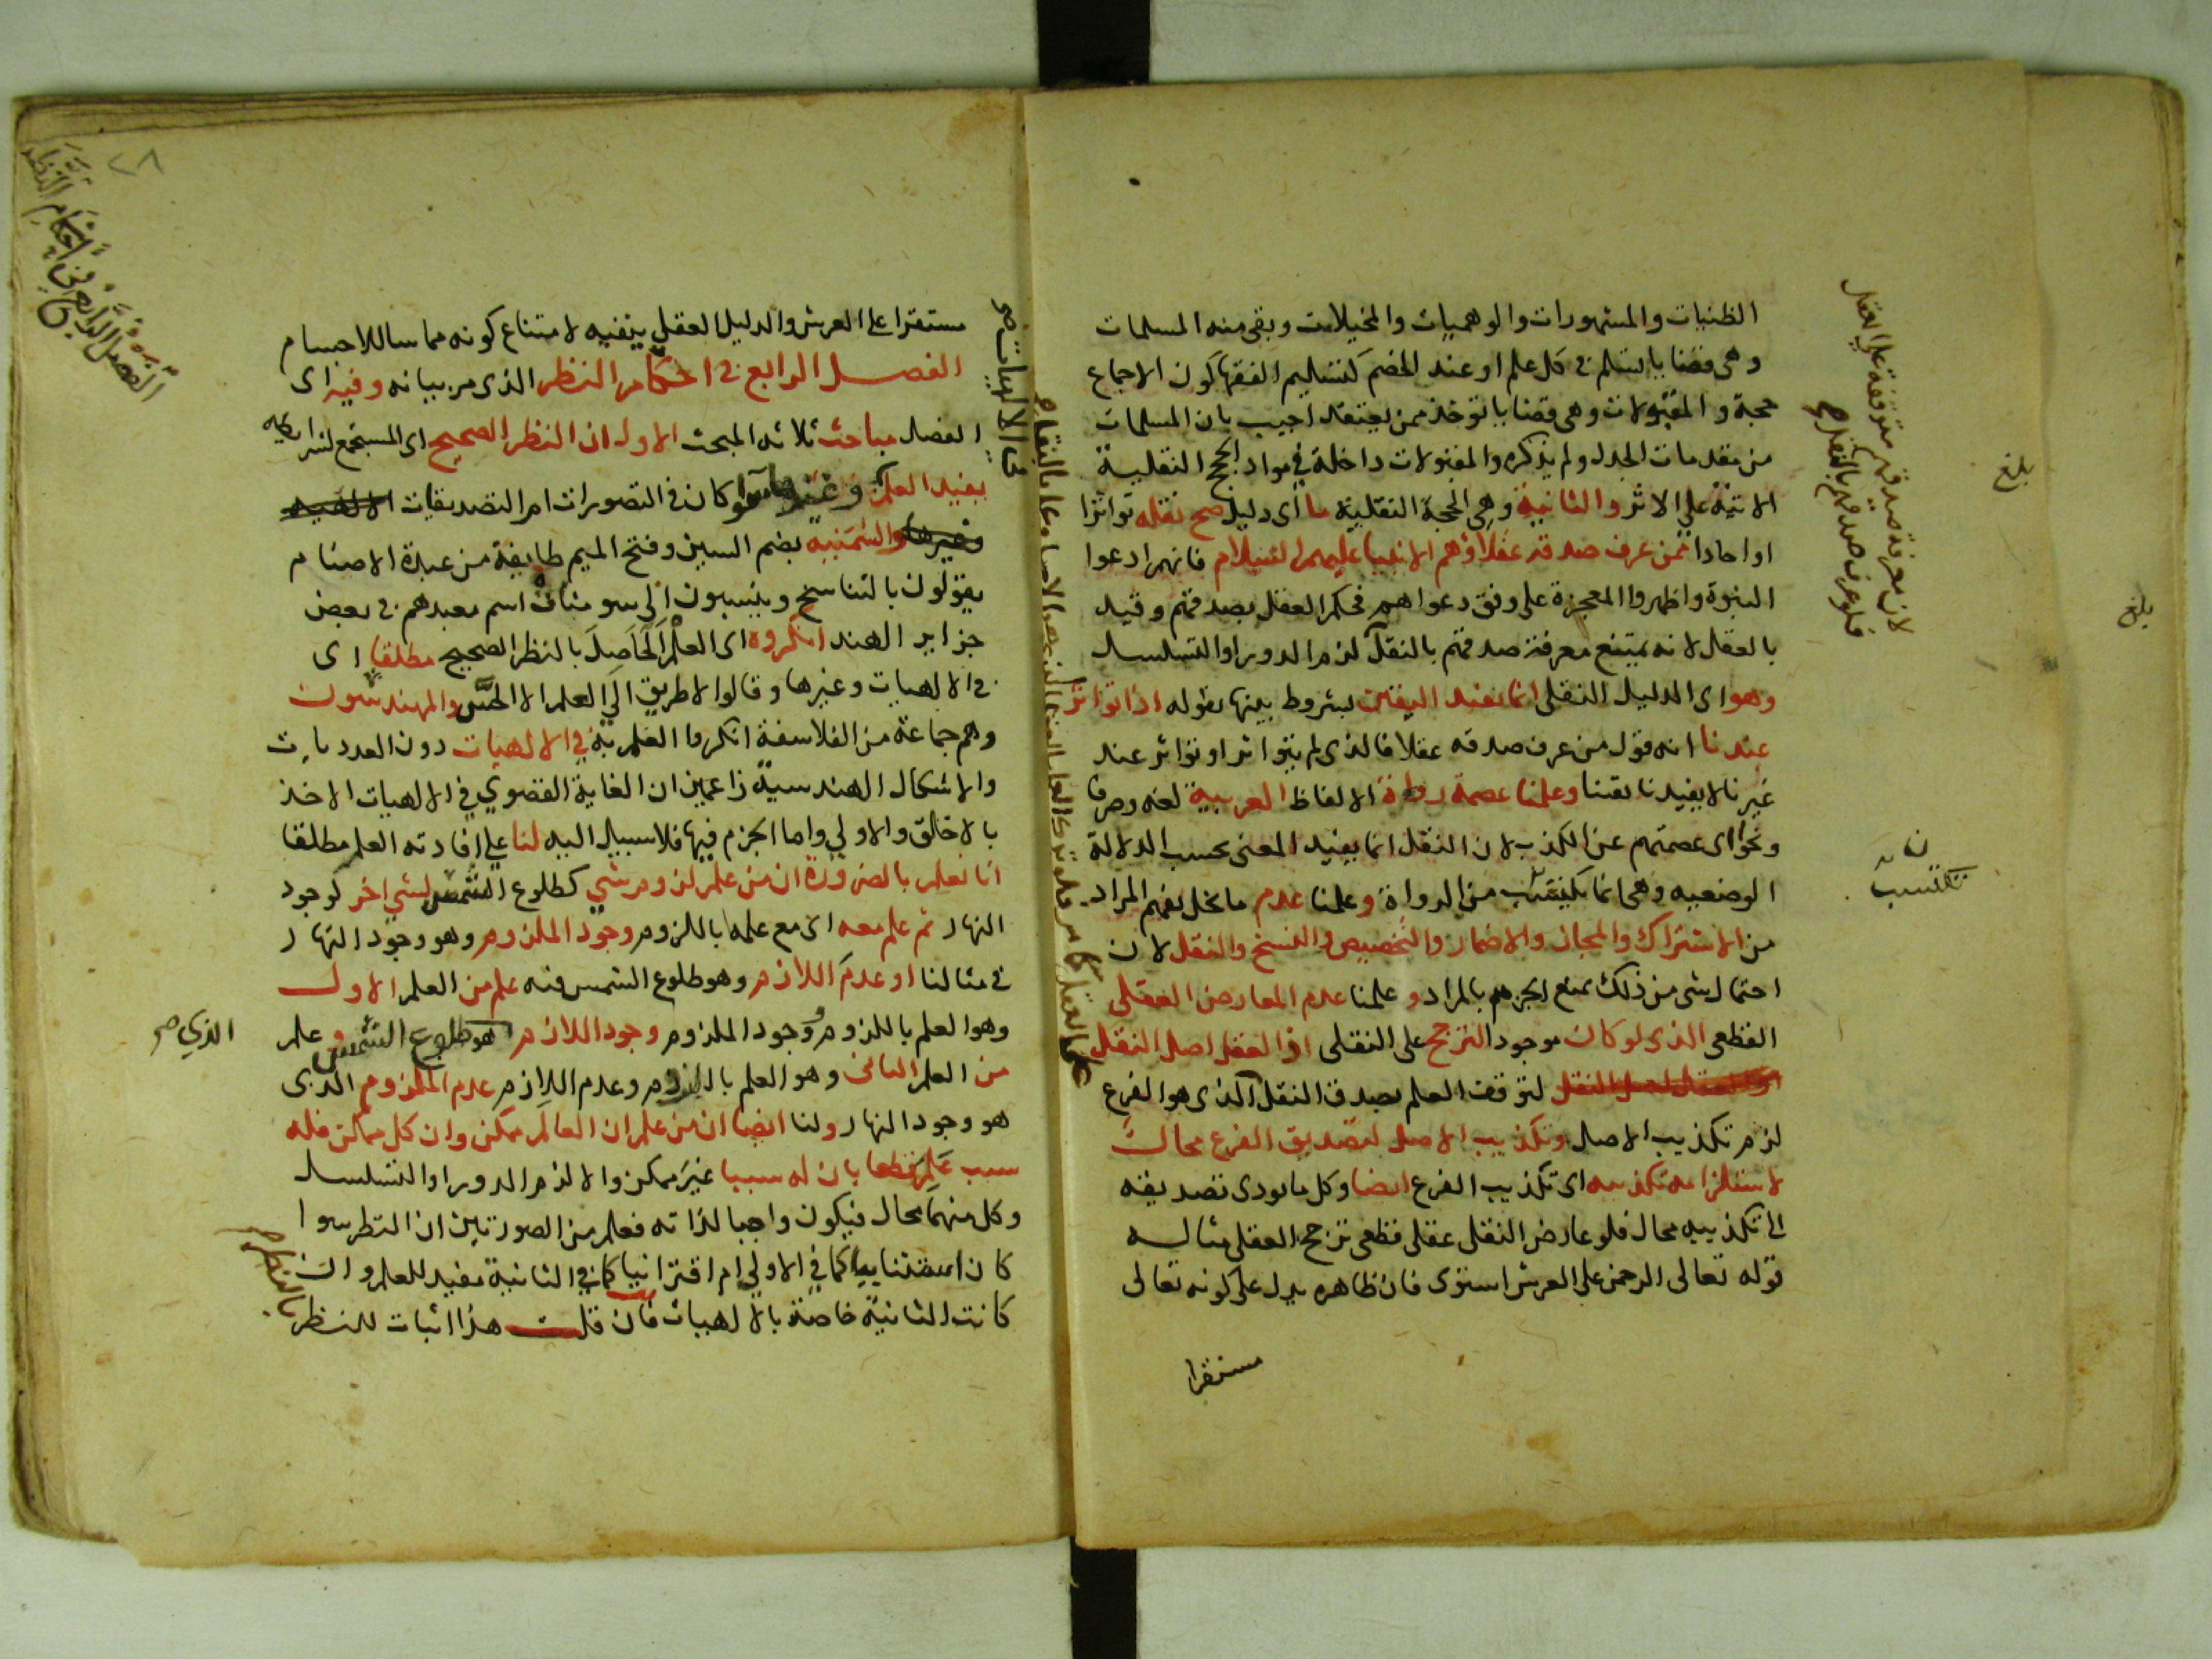 الظنيات والمشهورات والوهميات والمخيلات وبقى منه المسلمات
وهى قضايا تسلم فى كل علم او عند الخصم كتسليم الفقها كون الاجماع
حجة والمقبولات وهى قضايا توخذ ممن يعتقد اجيب بان المسلمات
من مقدمات الجدل ولم يذكره والمقبولات داخلة في مواد الحجج النقلية
الاتية على الاثر والثانية وهي الحجة النقلية ما اى دليل صح نقله تواترا
او احادا ممن عرف صدقه عقلا وهم الانبيا عليهم السلام فانهم ادعوا
النبوة واظهروا المعجزة على وفق دعواهم فحكم العقل بصدقهم وقيد
بالعقل لانه يمتنع معرفة صدقهم بالنقل لزم الدور او التسلسل
وهو اى الدليل النقلى انما يفيد اليقين بشروط بينها بقوله اذا تواتر
عندنا انه قول من عرف صدقه عقلا فالذى لم يتواتر او تواتر عند
غيرنا لا يفيدنا يقينا وعلمنا عصمة رواة الالفاظ العربية لغة وصرفا
ونحوا اى عصمتهم عن الكذب لان النقل انما يفيد المعنى بحسب الدلالة
الوضعيه وهى انما تكتسب من الرواة وعلمنا عدم ما يخل بفهم المراد
من الاشتراك والمجاز والاضمار والتخصيص والنسخ والنقل لان
احتمال شى من ذلك يمنع الجزم بالمراد وعلمنا عدم المعارض العقلى
القطعى الذى لو كان موجودا لترجح على النقلى اذ العقل اصل النقل
لتوقف العلم بصدق النقل الذى هو الفرع
لزم تكذيب الاصل وتكذيب الاصل لتصديق الفرع محال
لاستلزامه تكذيبه اى تكذيب الفرع ايضا وكل ما يودى تصديقه
الى تكذيبه محال فلو عارض النقلى عقلى قطعى ترجح العقلى مثاله
قوله تعالى الرحمن على العرش استوى فان ظاهره يدل على كونه تعالى
مستقرا
لان معرفة صدقهم متوقفة على العقل
فلو عرف صدقهم بالنقل صح
بلغ
بلغ
تكتسب
مستقرا على العرش والدليل العقلي ينفيه لامتناع كونه مماسا للاجسام
الفصل الرابع فى احكام النظر الذى مر بيانه وفيه اى
الفصل مباحث ثلاثه المبحث الاول ان النظر الصحيح اى المستجمع لشرايطه
يفيد العلم سوا كان فى التصورات ام التصديقات الالهيه
وغيرها والسمنيه بضم السين وفتح الميم طايفة من عبدة الاصنام
يقولون بالتناسخ وينسبون الى سومنات اسم معبدهم فى بعض
جزاير الهند انكروه اى العلم الحاصل بالنظر الصحيح مطلقا اى
فى الالهيات وغيرها وقالوا لا طريق الى العلم الا الحس والمهندسون
وهم جماعة من الفلاسفة انكروا العلم به في الالهيات دون العدديات
والاشكال الهندسية زاعمين ان الغاية القصوي في الالهيات الاخذ
بالاخلق والاولي واما الجزم فيها فلا سبيل اليه لنا علي افادته العلم مطلقا
انا نعلم بالضرورة ان من علم لزوم شي كطلوع الشمس لشي اخر كوجود
النهار ثم علم معه اى مع علمه باللزوم وجود الملزوم وهو وجود النهار
فى مثالنا او عدم اللازم وهو طلوع الشمس فنه علم من العلم الاول
وهو العلم باللزوم ووجود الملزوم وجود اللازم هو طلوع الشمس وعلم
من العلم الثانى وهو العلم باللزوم وعدم اللازم عدم الملزوم الذى
هو وجود النهار ولنا ايضا ان من علم ان العالم ممكن وان كل ممكن فله
سبب علم قطعا بان له سببا غير ممكن والا لزم الدور او التسلسل
وكل منهما محال فيكون واجبا لذاته فعلم من الصورتين ان النظر سوا
كان استثنايا كما في الاولي ام اقترانيا كما في الثانية مفيد للعلم وان
كانت الثانية خاصة بالالهيات فان قلت هذا اثبات للنظر
بالنظر
الذي صح
الفصل الرابع في احكام النظر
٢٨